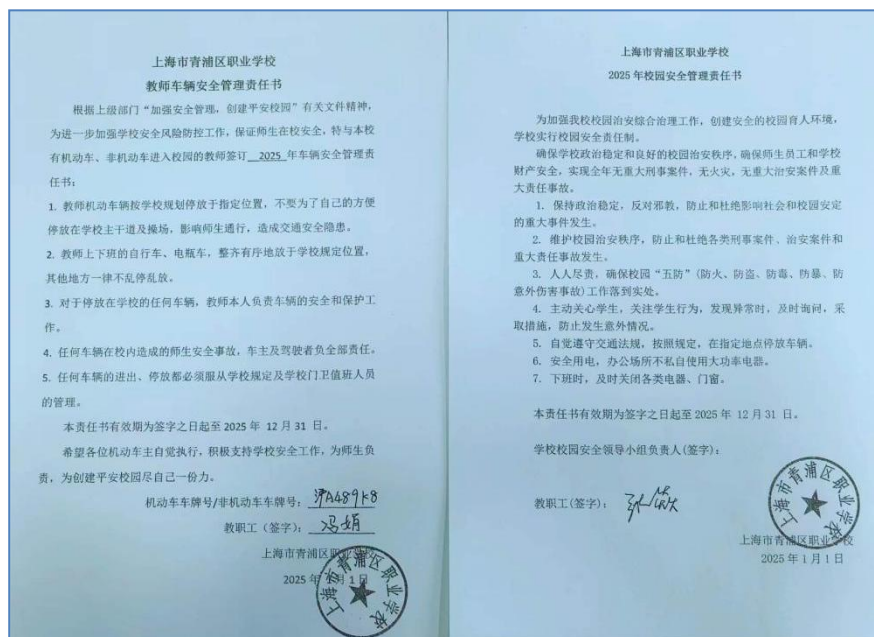 上海市青浦区职业学校
教师车辆安全管理责任书
根据上级部门“加强安全管理，创建平安校园”有关文件精神，
为进一步加强学校安全风险防控工作，保证师生在校安全，特与本校
有机动车、非机动车进入校园的教师签订 2025 年车辆安全管理责
任书：
1. 教师机动车辆按学校规划停放于指定位置，不要为了自己的方便
停放在学校主干道及操场，影响师生通行，造成交通安全隐患。
2. 教师上下班的自行车、电瓶车，整齐有序地放于学校规定位置，
其他地方一律不乱停乱放。
3. 对于停放在学校的任何车辆，教师本人负责车辆的安全和保护工
作。
4. 任何车辆在校内造成的师生安全事故，车主及驾驶者负全部责任。
5. 任何车辆的进出、停放都必须服从学校规定及学校门卫值班人员
的管理。
本责任书有效期为签字之日起至 2025 年 12 月 31 日。
希望各位机动车主自觉执行，积极支持学校安全工作，为师生负
责，为创建平安校园尽自己一份力。
机动车车牌号/非机动车车牌号：沪A489K8
教职工（签字）：冯娟
上海市青浦区职业学校
2025 年 月 1 日
上海市青浦区职业学校
上海市青浦区职业学校
2025 年校园安全管理责任书
为加强我校校园治安综合治理工作，创建安全的校园育人环境，
学校实行校园安全责任制。
确保学校政治稳定和良好的校园治安秩序，确保师生员工和学校
财产安全，实现全年无重大刑事案件，无火灾，无重大治安案件及重
大责任事故。
1. 保持政治稳定，反对邪教，防止和杜绝影响社会和校园安定
的重大事件发生。
2. 维护校园治安秩序，防止和杜绝各类刑事案件、治安案件和
重大责任事故发生。
3. 人人尽责，确保校园“五防”(防火、防盗、防毒、防暴、防
意外伤害事故)工作落到实处。
4. 主动关心学生，关注学生行为，发现异常时，及时询问，采
取措施，防止发生意外情况。
5. 自觉遵守交通法规，按照规定，在指定地点停放车辆。
6. 安全用电，办公场所不私自使用大功率电器。
7. 下班时，及时关闭各类电器、门窗。
本责任书有效期为签字之日起至 2025 年 12 月 31 日。
学校校园安全领导小组负责人(签字)：
教职工(签字)：张
上海市青浦区职业学校
2025 年 1 月 1 日
上海市青浦区职业学校